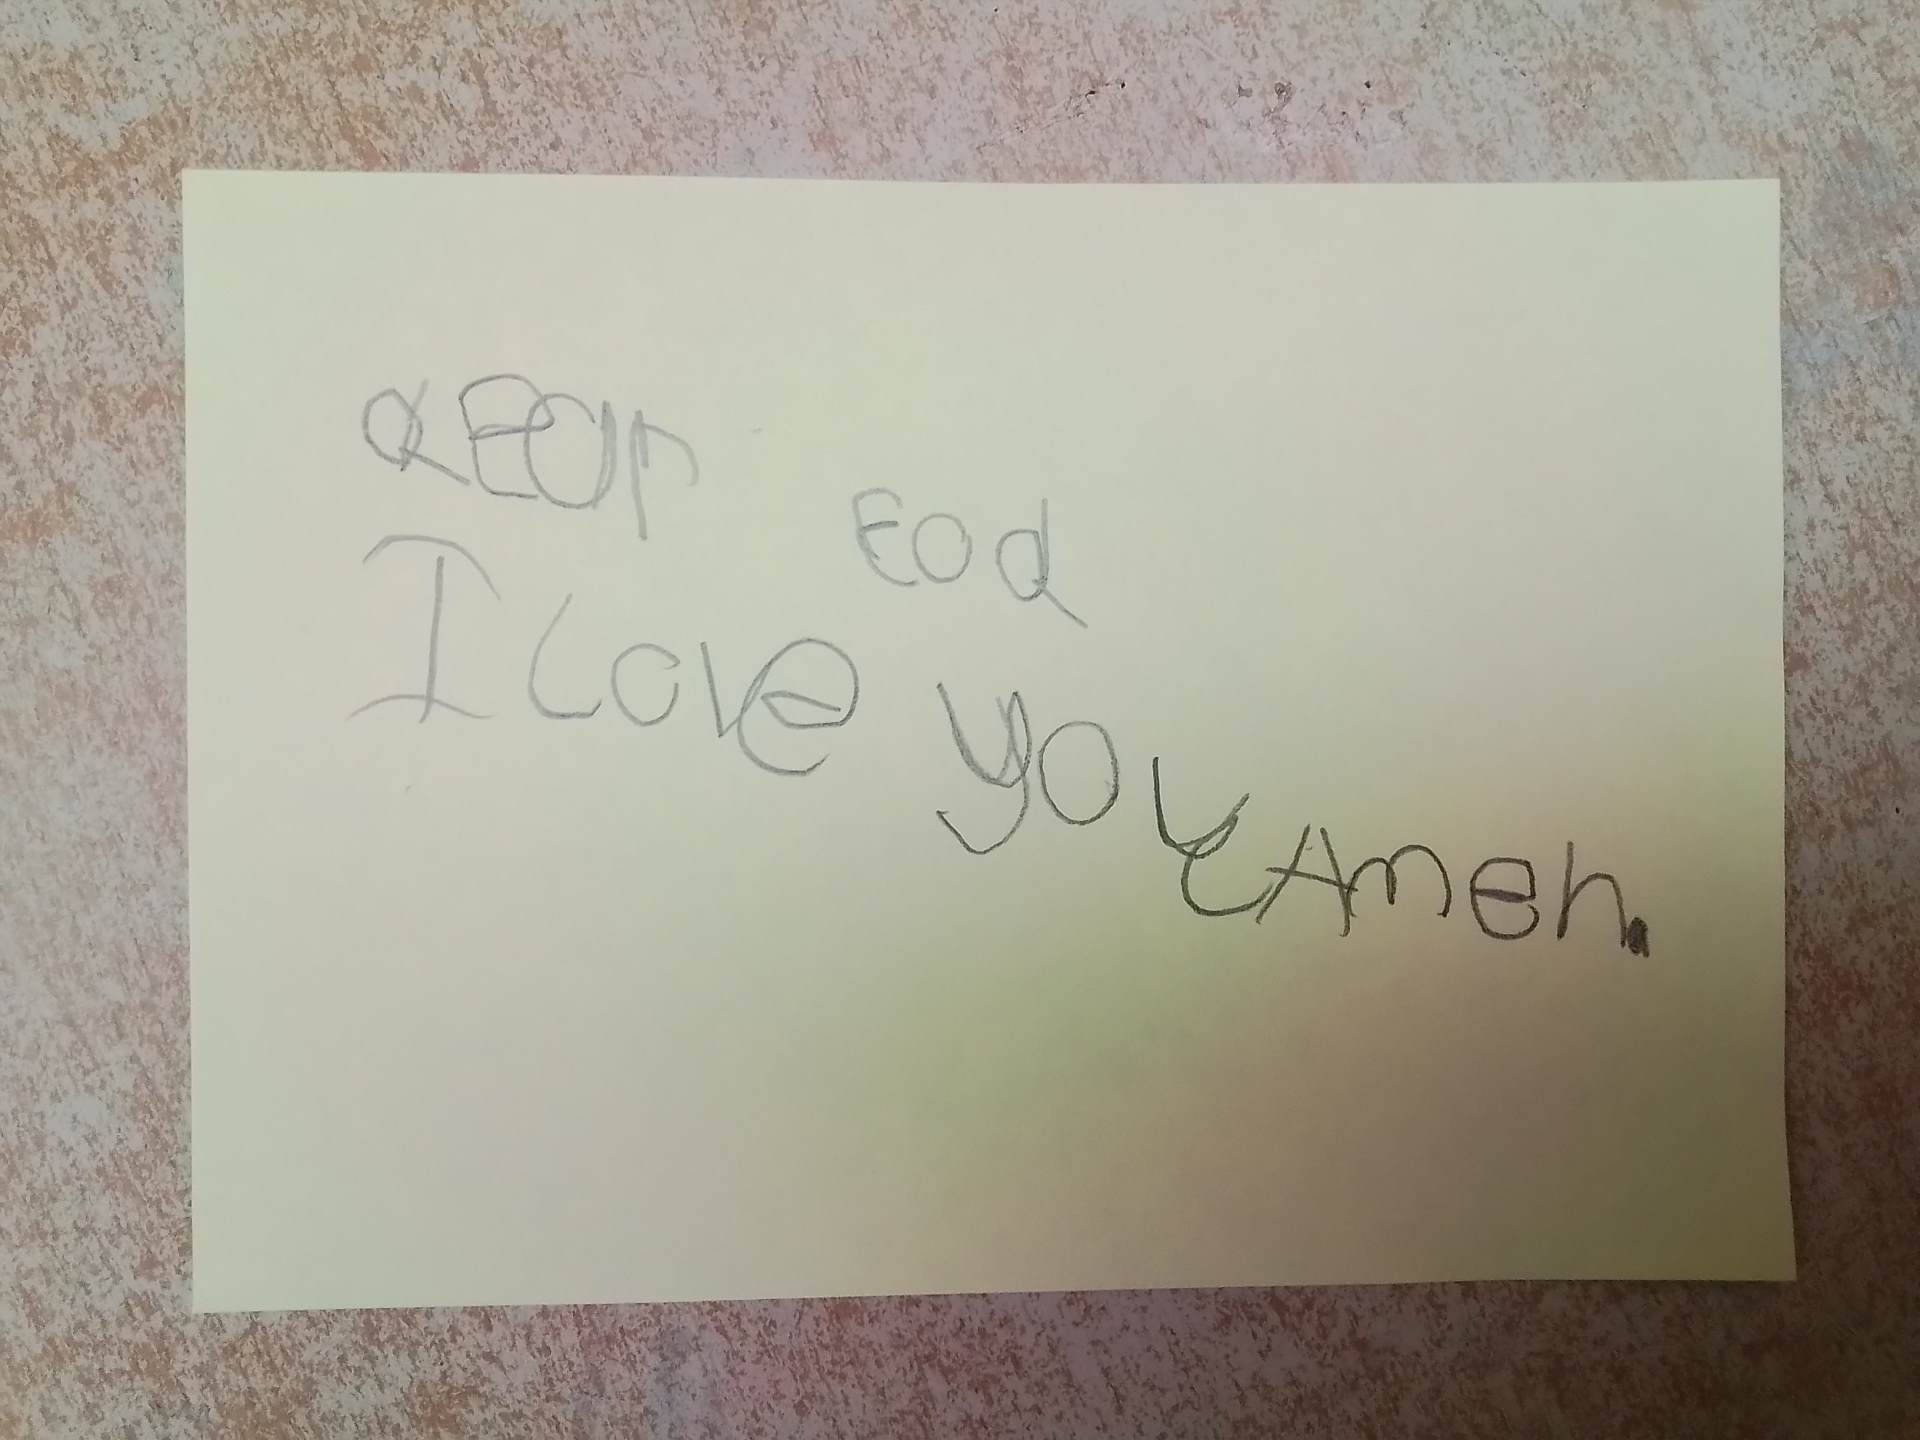 dear God
I Love you Amen.